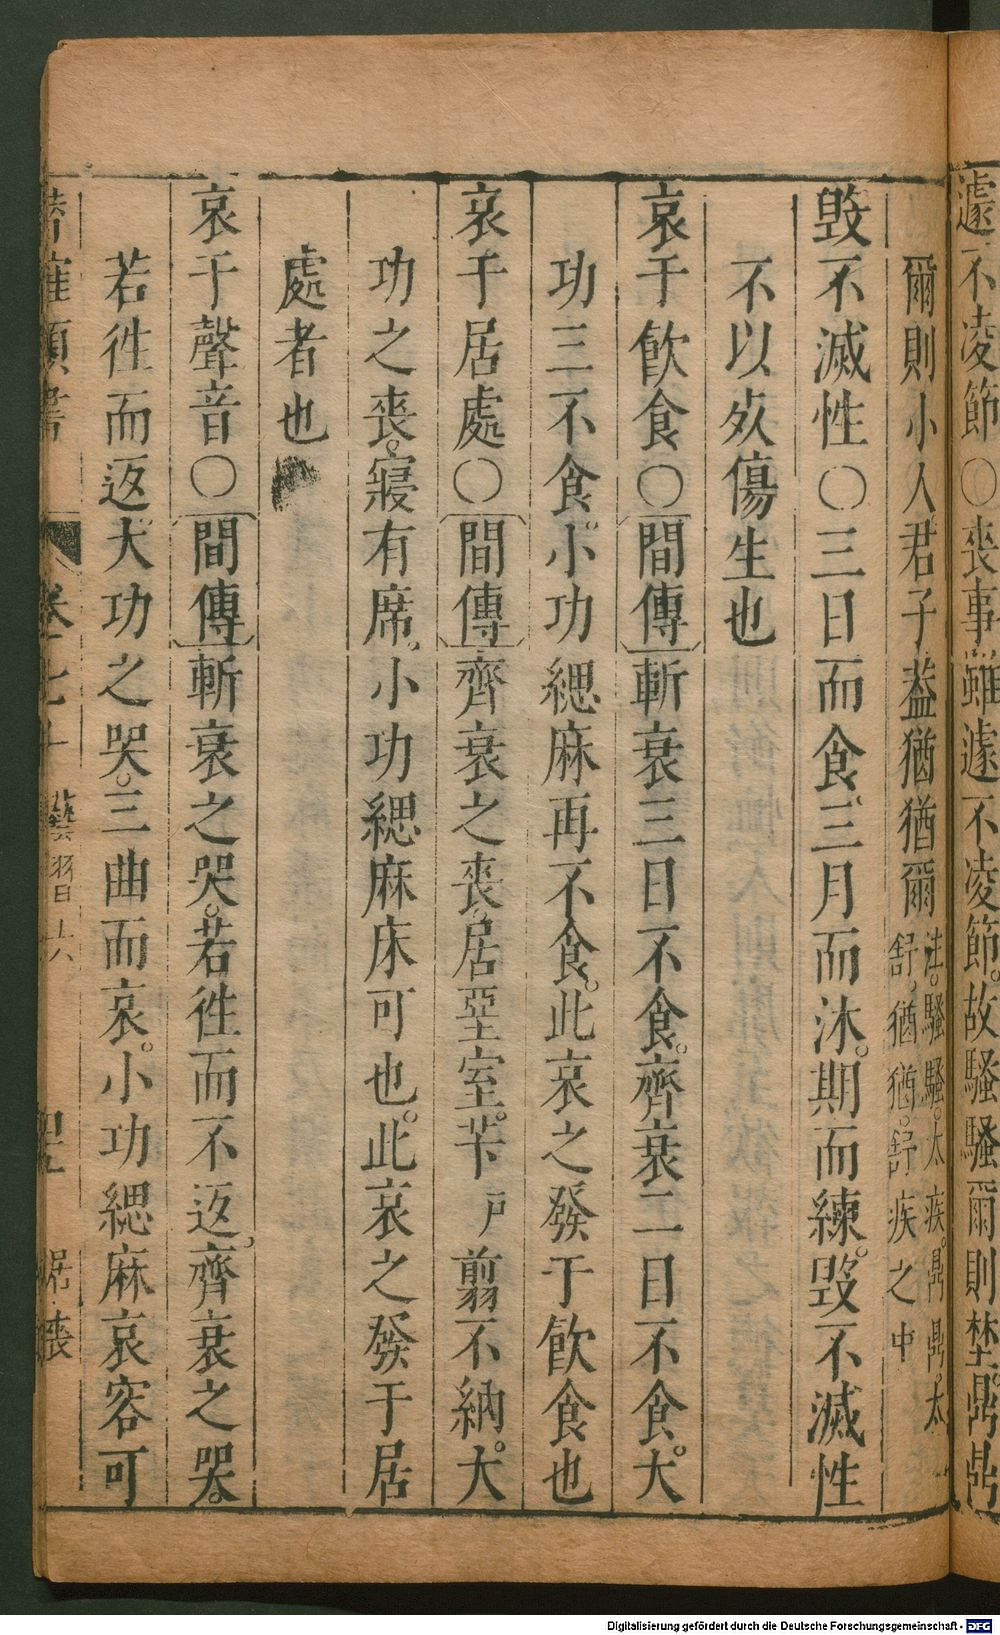 遽不凌節○喪事雖遽不凌節故騷騷爾則埜鼎鼎
爾則小人君子蓋猶猶爾 注騷騷太疾鼎鼎太
舒猶猶舒疾之中
毀不滅性○三日而食三月而沐期而練毀不滅性
不以死傷生也
哀于飲食○間傳斬衰三日不食齊衰二日不食大
功三不食小功緦麻再不食此哀之發于飲食也
哀于居處○間傳齊衰之喪居堊室芐戶翦不納大
功之喪寢有席小功緦麻床可也此哀之發于居
處者也
哀于聲音○間傳斬衰之哭若徃而不返齊衰之哭
若徃而返大功之哭三曲而哀小功緦麻哀容可
類書 卷 藝習六 居喪
Digitalisierung gefördert durch die Deutsche Forschungsgemeinschaft - DFG